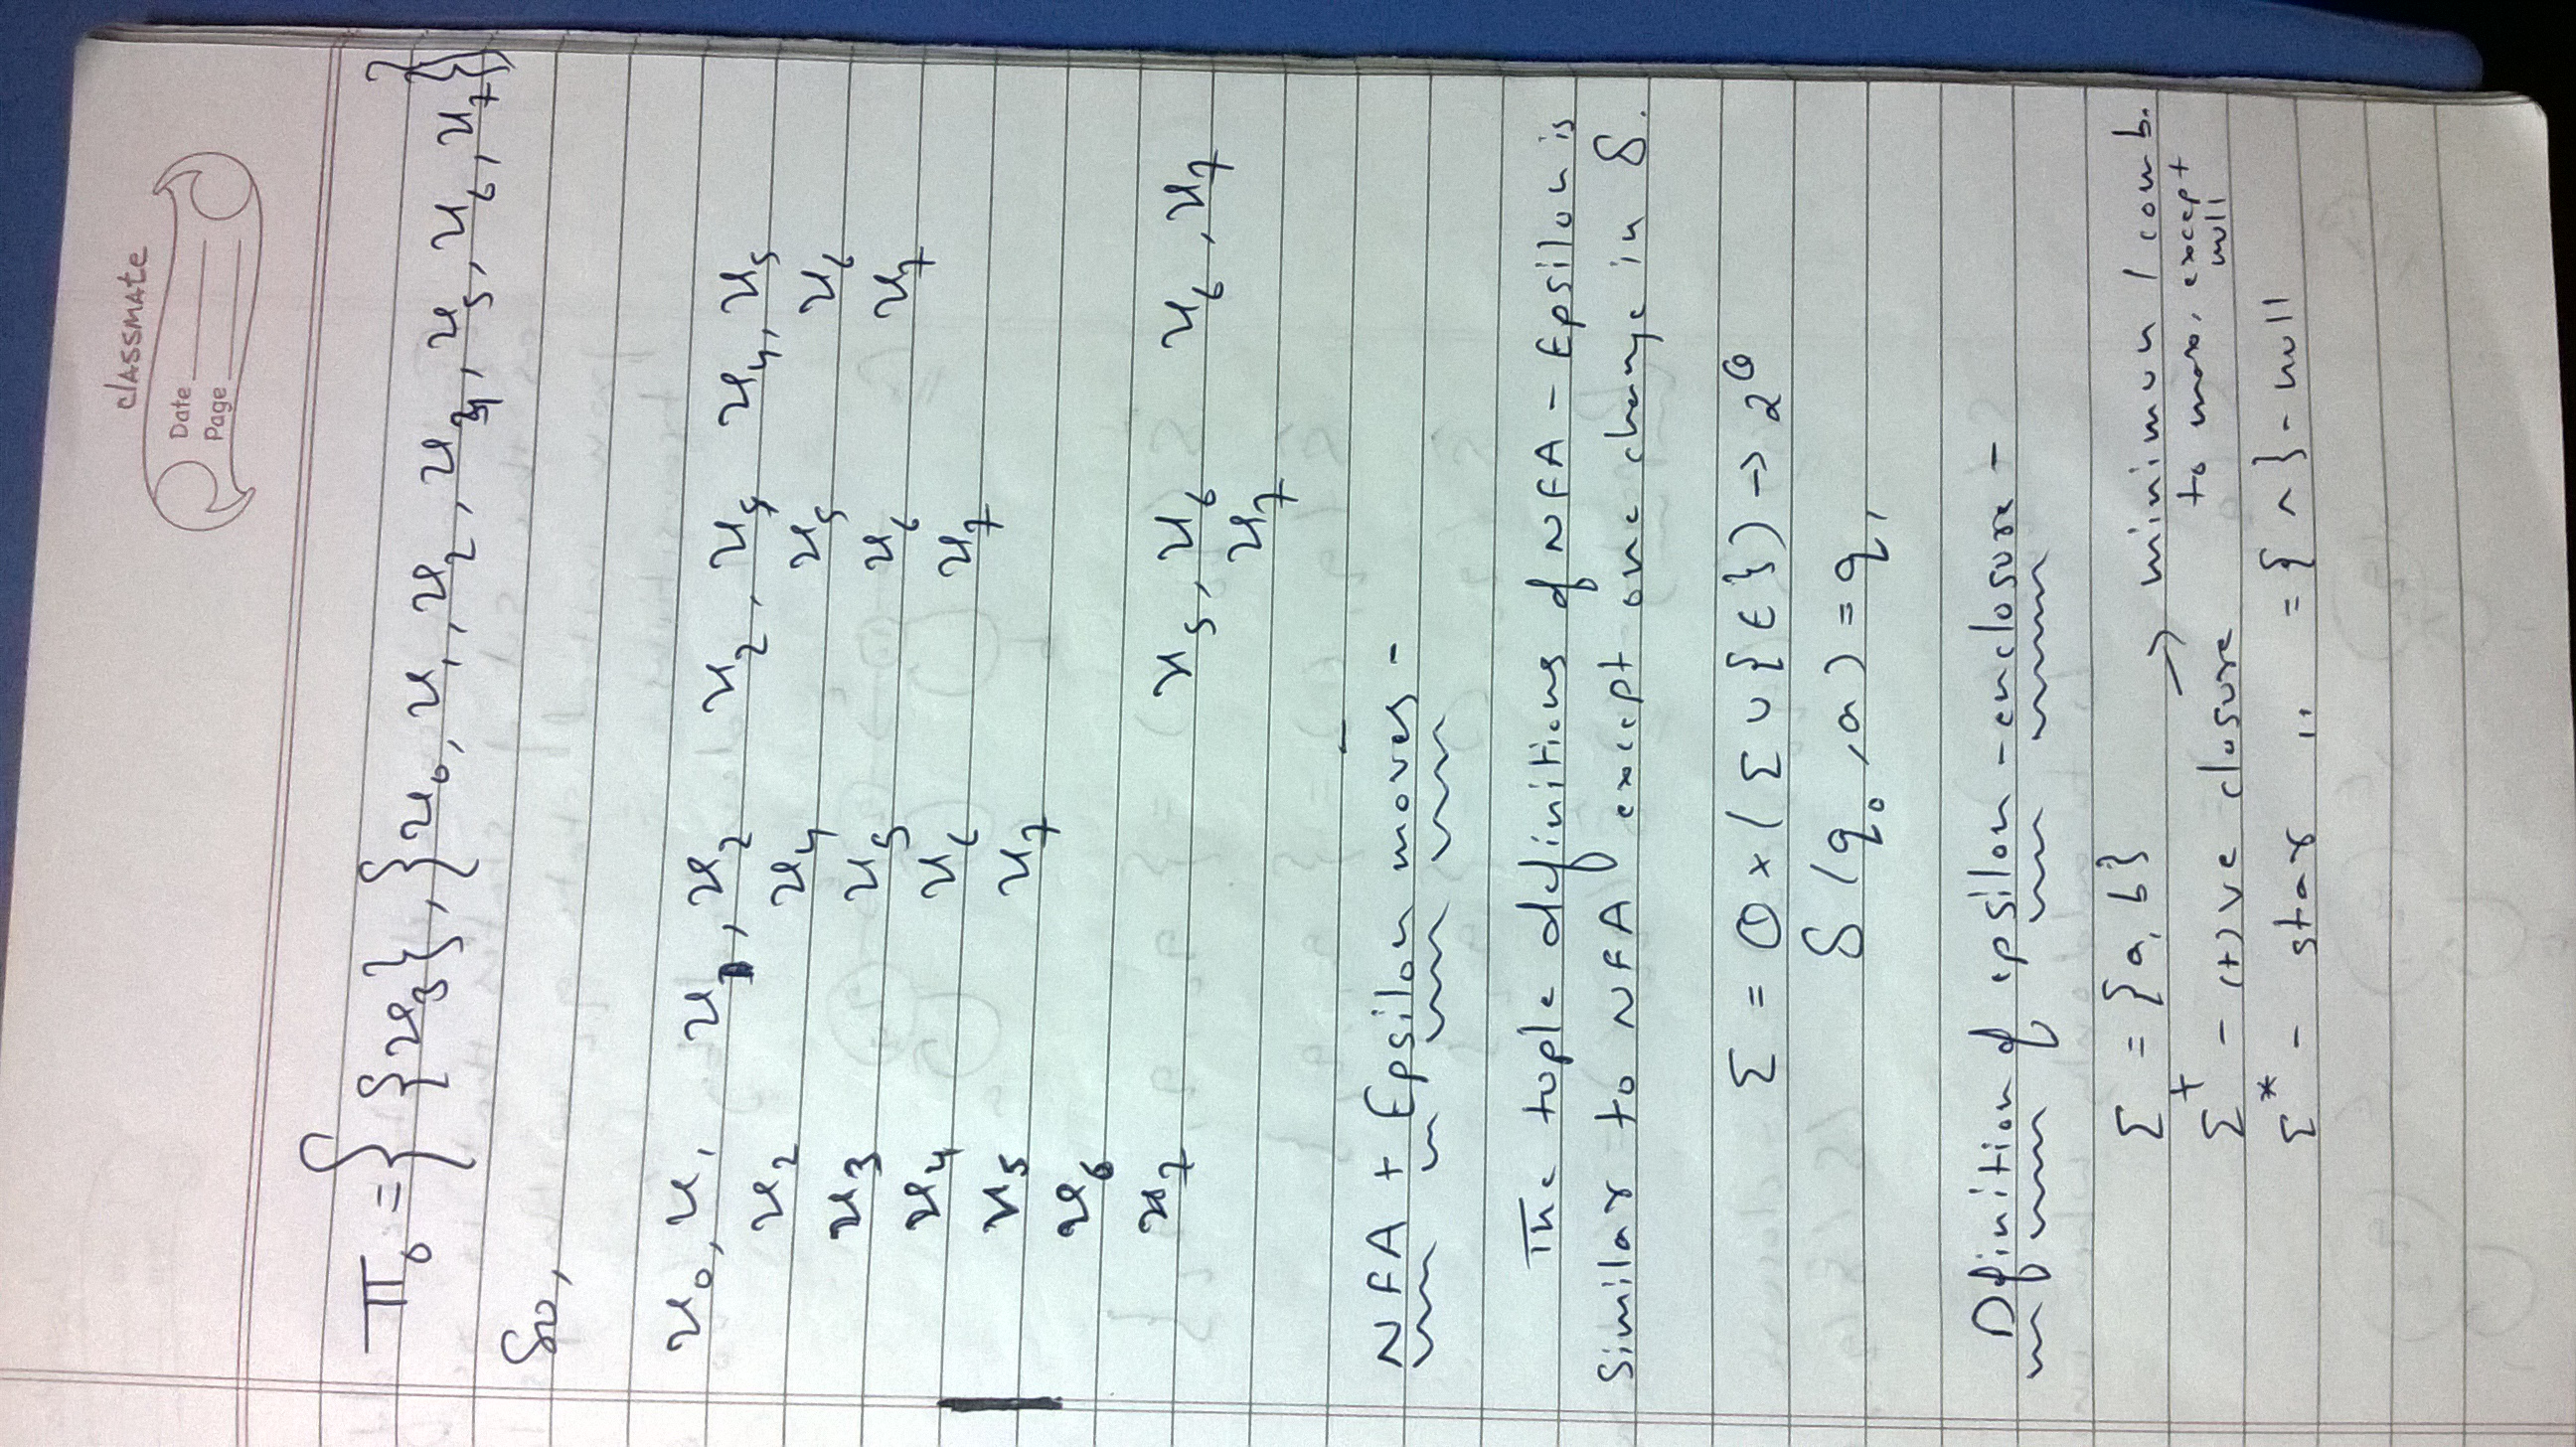 classmate
Date
Page
Π₀ = { {x₃}, {x₀, x₁, x₂, x₄, x₅, x₆, x₇} }
So,
x₀, x₁ x₁, x₂ x₂, x₄ x₄, x₅
x₂ x₄ x₅ x₆
x₃ x₅ x₆ x₇
x₄ x₆ x₇
x₅ x₇
x₆
x₇ x₅, x₆ x₆, x₇
x₇
NFA + Epsilon moves -
The tuple definitions of NFA - Epsilon is
Similar to NFA except one change in δ.
Σ = Q × (Σ ∪ {ϵ}) → 2^Q
δ (q₀, a) = q₁
Dfinition of epsilon -enclosure -
Σ = {a, b}
Σ⁺ - (+)ve closure → minimun 1 comb.
to max. except
null
Σ* - star " = { ^ } - null